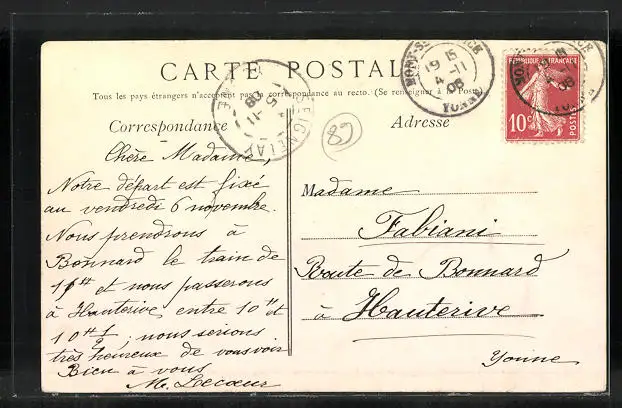 CARTE POSTALE
Tous les pays étrangers n'acceptent pas la correspondance au recto. (Se renseigner à la Poste)
Correspondance
Adresse
MONT-ST-SULPICE
19 15
4 -11
08
YONNE
SEIGNELAY
5 -11
08
68
RÉPUBLIQUE FRANÇAISE
10c
POSTES
Chère Madame,
Notre départ est fixé
au vendredi 6 novembre.
Nous prendrons à
Bonnard le train de
11H et nous passerons
à Hauterive, entre 10H et
10H 1/2; nous serions
très heureux de vous voir
Bien à vous
M. Lecoeur
Madame
Fabiani
Route de Bonnard
à Hauterive
Yonne